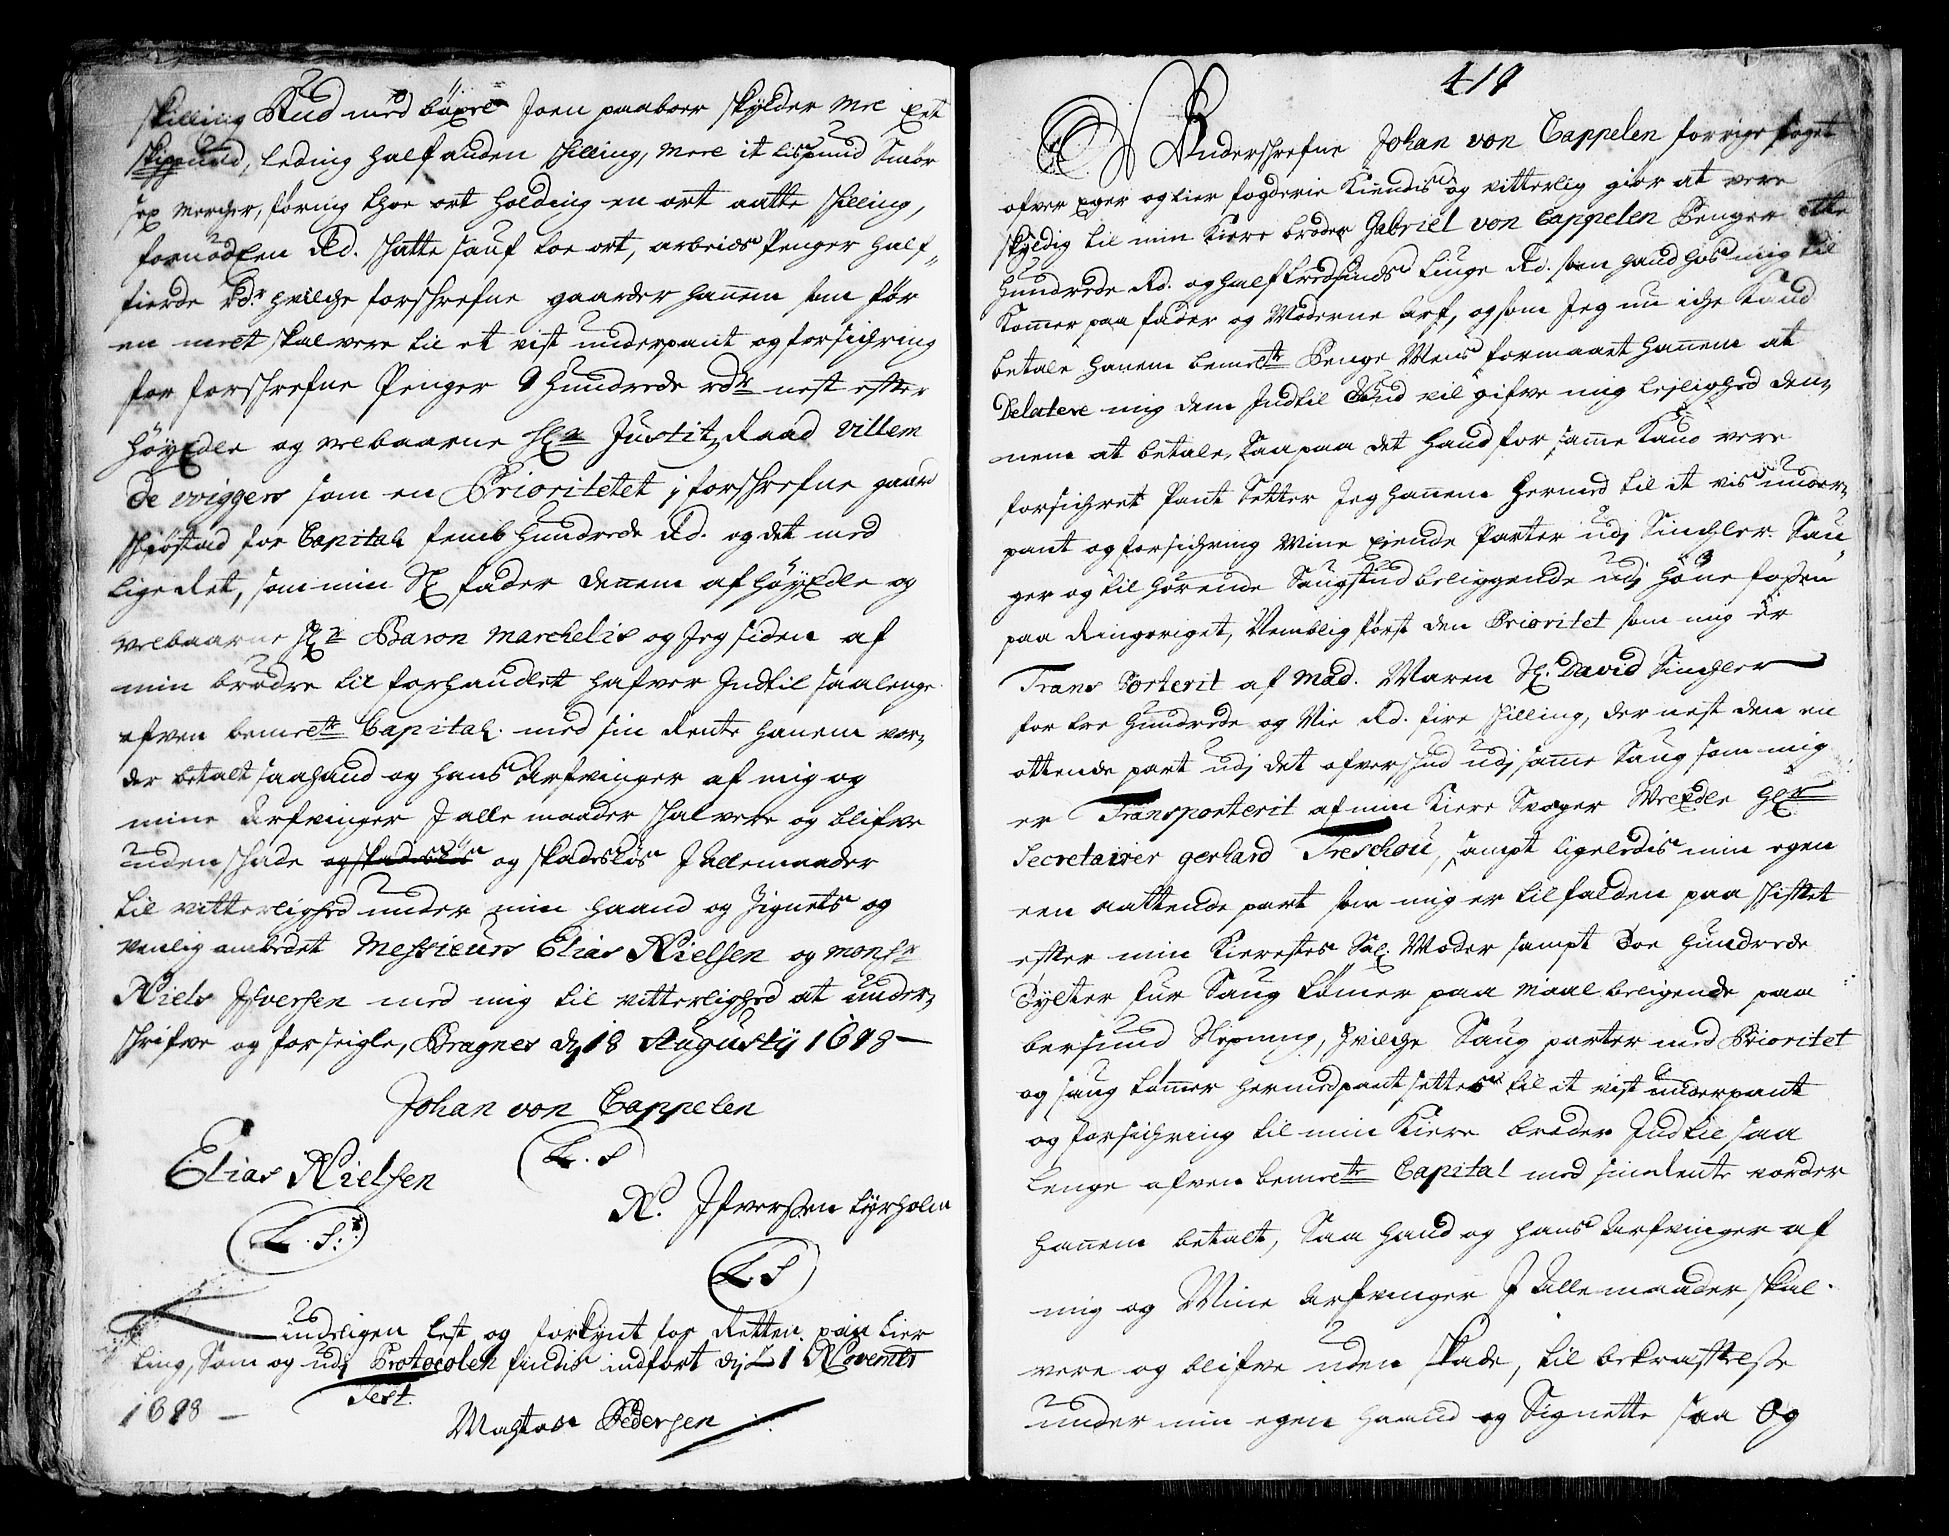 skilling Knud med böxel Joen paaboer skylder Mel Eet
skippund, leding half anden skilling, Meel it lispund Smör
sex Mercher, föring thoe ort holding en ort aatte skilling,
fornödEen Rd. skatte sauf toe ort, arbeids Penger half-
fierde Rdr hvilche forschrefne gaarder hannem som för
en meelt skal vere til et vist underpant og forsichring
for forschrefne Penger 9 Hundrede rdr nest effter
HöyEdle og velbaarne Hr Justitz Raad Villem
de vriggers som en Prioritetet i forschrefne gaard
Schiöstad for Capital femb Hundrede Rd. og det med
lige ret, som min Sl fader dennem af HöyEdle og
velbaarne Hr Baron Marchelis og Jeg siden af
min brødre til forhandlet hafver Indtil saalenge
ofven bemelte Capital med sin Rente hanem vor-
der betalt saa hand og hans Arfvinger af mig og
mine Arfvinger J alle maader skal vere og blifve
uden skade og skadeslös og skadeslös J alle maader
til vitterlighed under min haand og Zignets og
venlig ombedet Messieurs Elias Nielsen og Monsr
Niels Jfversen med mig til vitterlighed at under-
schrifve og forseigle, Bragnes dy 18 Augustij 1698
Johan von Cappelen
Elias Nielsen L.S
N. Jfversen Lyrholm
L.S.
L S
indeligen lest og forkynt for Retten paa Lier
ting, Som og udj Protocolen findis indfört dy 21 Novembr
1698 Test.
Madtz Pedersen
419
Underschrefne Johan von Cappelen forrige foget
ofver Eger og Lier fogderie Kiendis og vitterlig giör at vere
skyldig til min Kiere broder Gabriel von Cappelen Penger otte
Hundrede Rd. og half tredsinds tiuge Rd. som hand hos mig til
Komer paa fader og Moderne Arf, og som Jeg nu iche Kand
betale hanem bemelte Penge Mens formaaet hannem at
Delatere mig dem Indtil Gud vil gifve mig lejlighed den-
nem at betale, Saa paa det hand for samme Kand vere
forsichret Pant Setter Jeg hannem hermed til et vis under-
pant og forsichring Mine Eiende Parter udj Sinchler. Sau-
ger og til hörende Saugstud beliggende udj Höne fossen
paa Ringeriget, Nemblig först den Prioritet som mig Er
Trans Porterit af Mad. Maren Sl. David Sinchler
for tre Hundrede og Nie Rd. fire skilling, der nest den en
ottende part udj det ofverskud udj samme Saug som mig
er Transporterit af min Kiere Svoger VelEdle Hr
Secretairer gerhard Treschou, sampt ligeledis min egen
een aattende part som mig er tilfalden paa skifftet
effter min Kierestes Sal. Moder sampt toe Hundrede
Tylter fur Saug tömer paa Maal beligende paa
bersund Slepning, hvilche Saug parter med Prioritet
og saug tömer hermed pant settes til et vist underpant
og forsichring til min Kiere broder Indtil saa
lenge ofven bemelte Capital med sin Rente vorder
hanem betalt, Saa hand og hans Arfvinger af
mig og Mine Arfvinger J Alle maader, skal
vere og blifve uden skade, til bekrefftelsse
under min egen haand og Signette saa Og